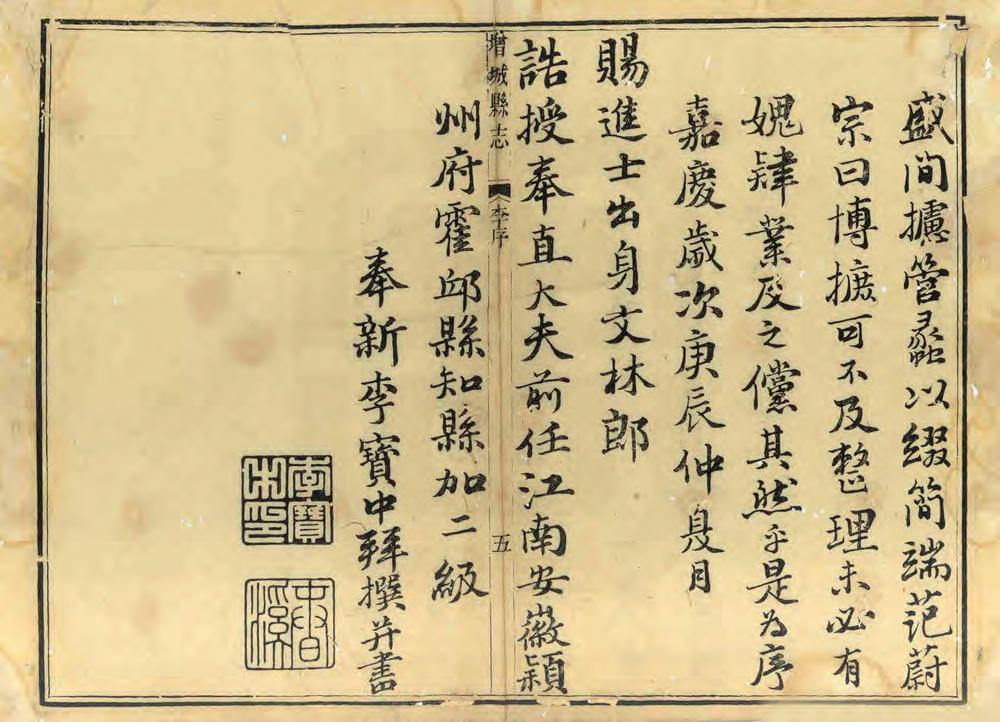 盛間攄管蠡以綴簡端范蔚
宗曰博摭可不及整理未必有
媿肄業及之儻其然乎是為序
嘉慶歲次庚辰仲夏月
賜進士出身文林郎
誥授奉直大夫前任江南安徽潁
增城縣志
李序
五
州府霍邱縣知縣加二級
奉新李寶中拜撰并書
李寶中印